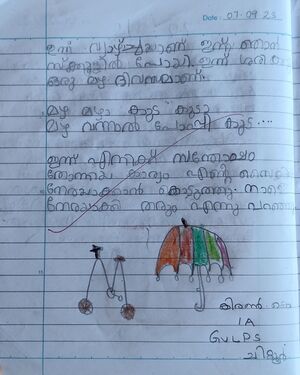 Date: 07-09-23
ഇന്ന് വ്യാഴാഴ്ചയാണ് ഇന്ന് ഞാൻ
സ്കൂളിൽ പോയി ഇന്ന്
ഒരു മഴ ദിവസമാണ്.
മഴ മഴാ കുട കുട
മഴ വന്നാൽ പോപ്പി കുട....
ഇന്ന് എനിക്ക് സന്തോഷം
തോന്നിയ കാര്യം എന്റെ സൈക്കിൾ
നേരെയാക്കാൻ കൊടുത്തു. നാളെ
നേരെയാക്കി തരും എന്നു പറഞ്ഞു
കിരൺ
1A
GVLPS
ചിറ്റൂർ